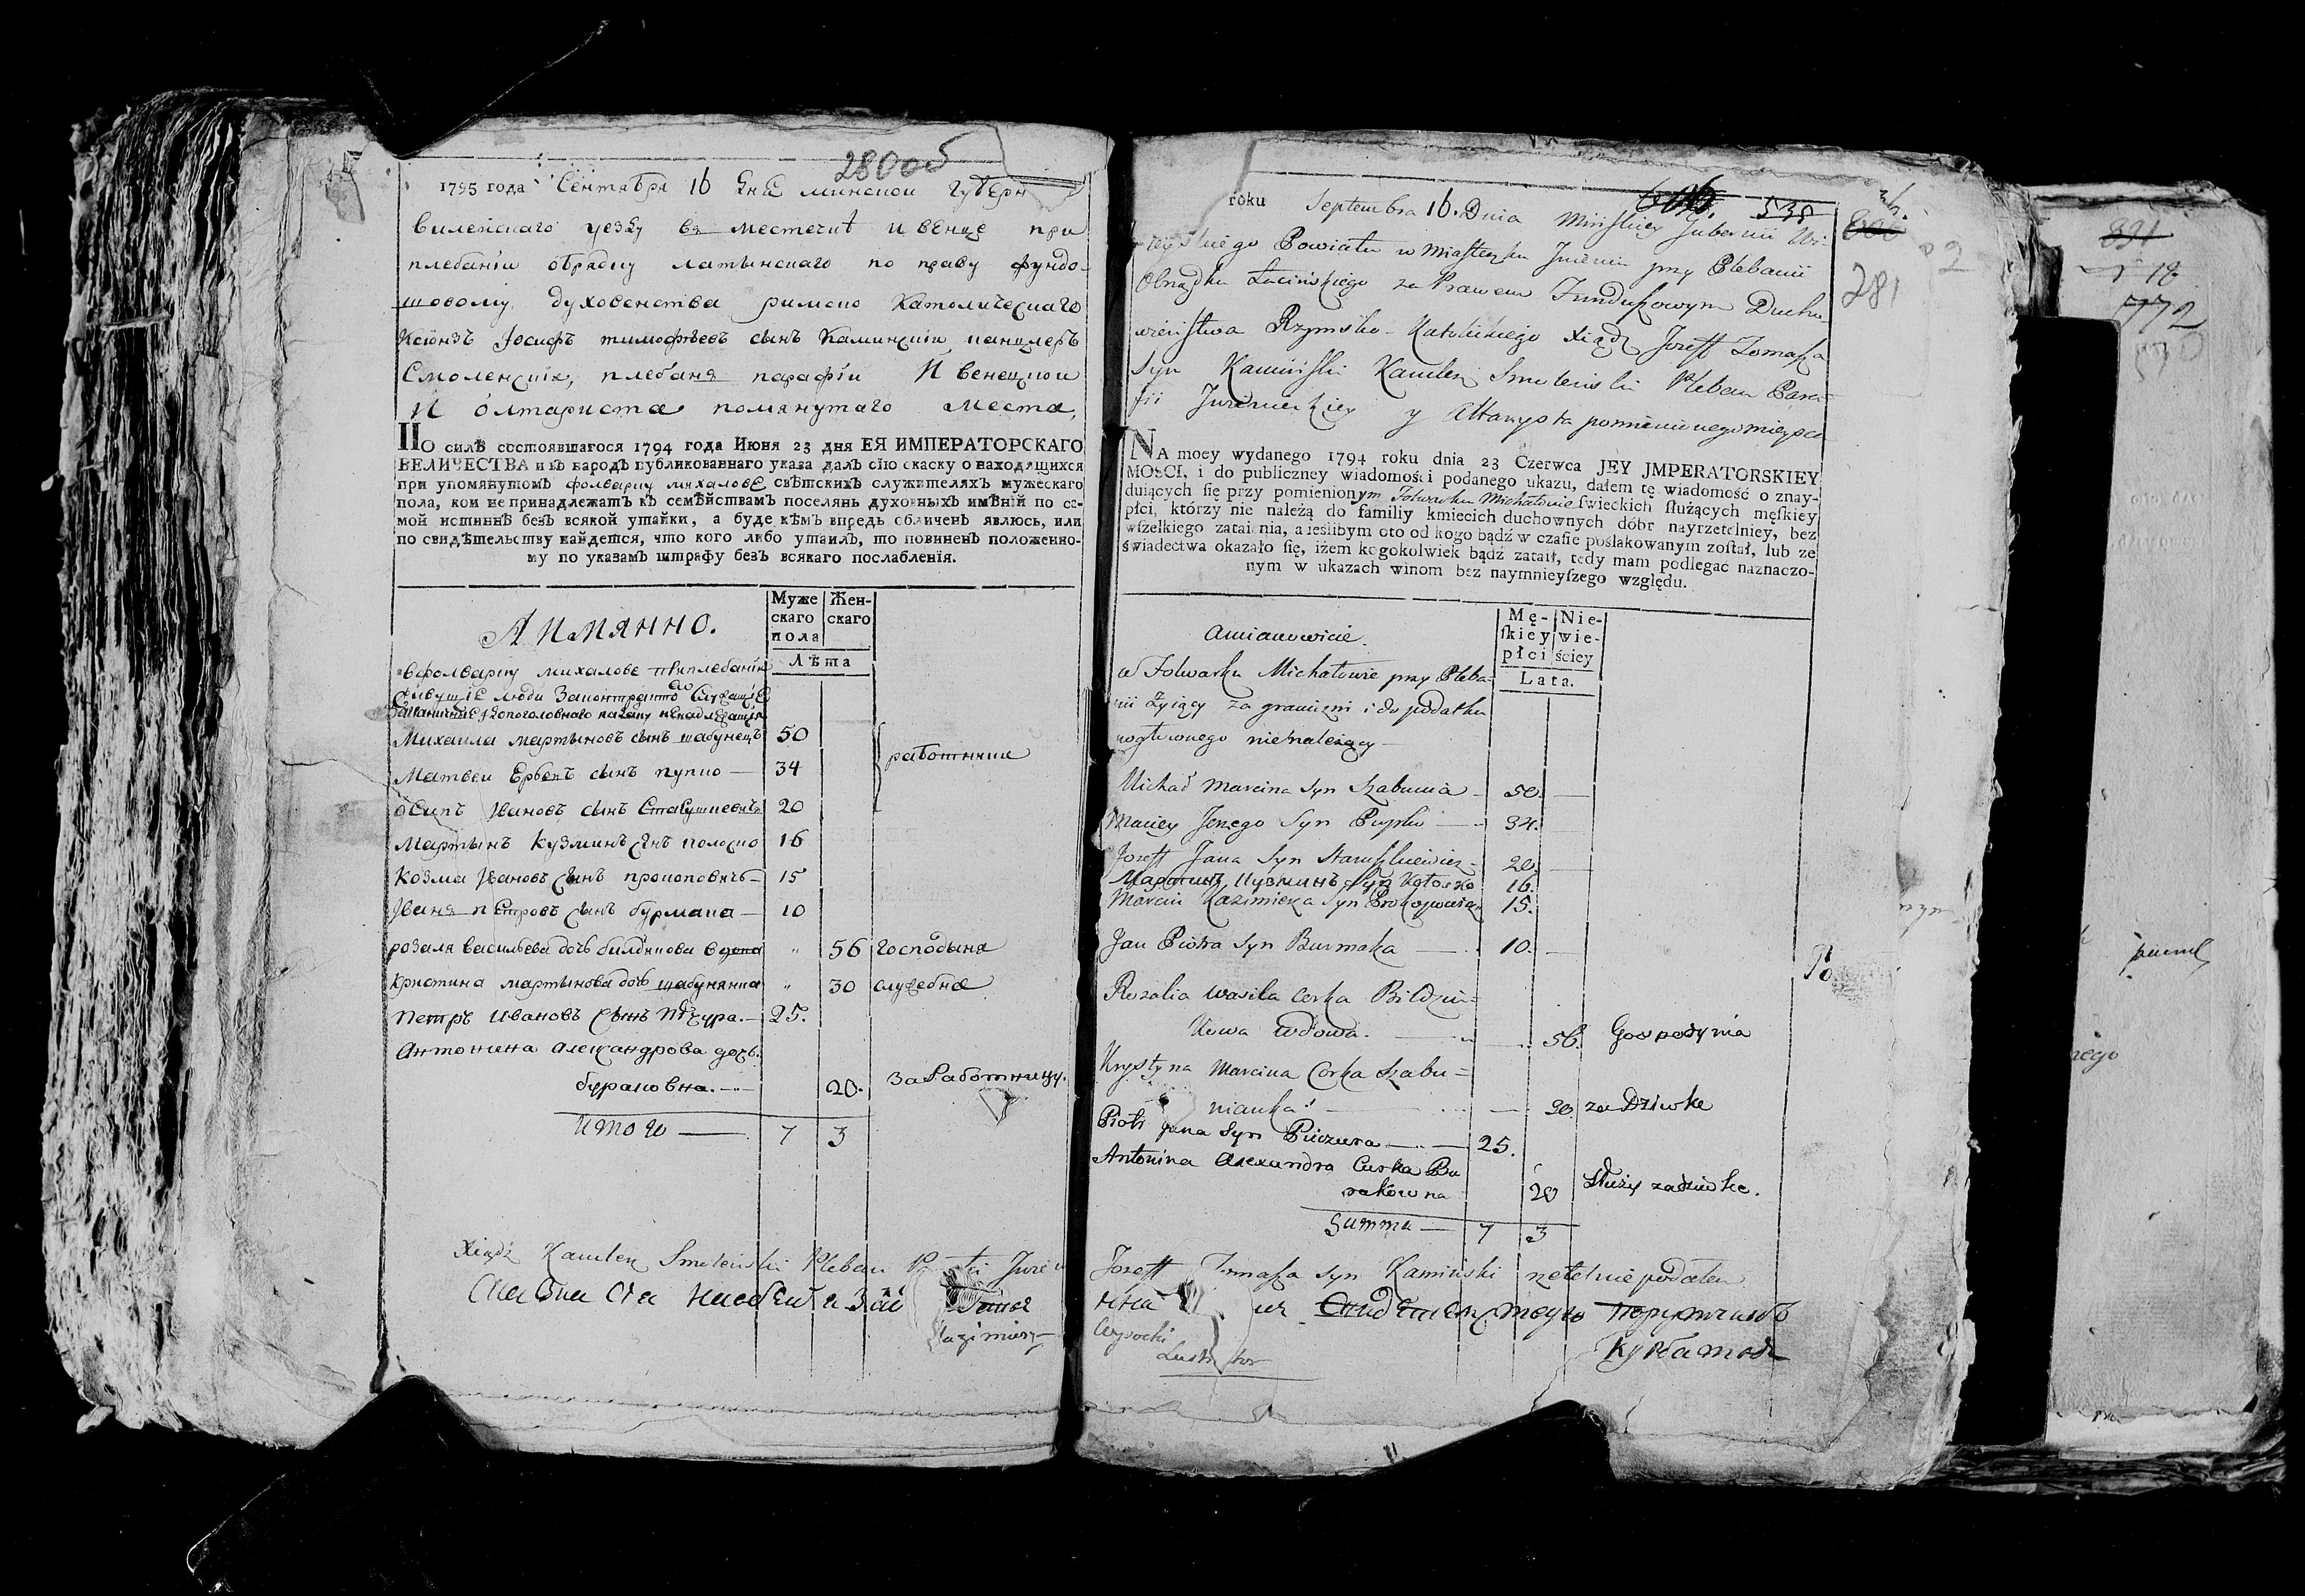 280об
1795 года Сентября 16 дня минской губерн
вилейскаго уезду в местечкѣ ивенце при
плебаніи обрядку латынскаго по праву фундо-
шовому духовенства римско католическаго
Ксіондзъ Іосифъ тимофѣевъ сынъ Каминскіи канцлеръ
Смоленскіи, плебаня парафіи Ивенецкои
И олтариста помянутаго места,
ПО силѣ состоявшагося 1794 года Июня 23 дня ЕЯ ИМПЕРАТОРСКАГО
ВЕЛИЧЕСТВА и въ народъ публикованнаго указа далъ сію скаску о находящихся
при упомянутомъ фолварку михалове свѣтскихъ служителяхъ мужескаго
пола, кои не принадлежатъ къ семѣйствамъ поселянъ духовныхъ имѣній по са-
мой истиннѣ безъ всякой утайки, а буде кѣмъ впредь обличенъ явлюсь, или
по свидѣтельству найдется, что кого либо утаилъ, то повиненъ положенно-
му по указамъ штрафу безъ всякаго послабленія.
АИМЯННО.
Муже
скаго
пола
Жен-
скаго
Лѣта
вфолварку михалове приплебаніи
живущіе люди
Михаила мартыновъ сынъ шабунецъ 50
работники
Матвеи сынъ пупко — 34
осипъ Ивановъ сынъ Сташкевичъ 20
Мартынъ Кузминъ сынъ колоско 16
Козма Ивановъ сынъ прокоповичъ — 15
Іваня петровъ сынъ бурмака — 10
розаля васильева дочь билдзикова вдова " 56 господыня
Кристина мартынова дочь шабунянка " 30 служебна
Петръ Ивановъ сынъ Пѣчура. — 25.
Антонина александрова дочь.
бураковна. — 20. заработницу.
Итого — 7 3
Xiądz Kanclerz Smoleński Pleban
Kazimierz
535
281
roku Septembra 16. Dnia Minskiey Gubernii Wi-
leyskiego Powiatu w Miasteczku Jwencu przy Plebanii
Obrządku Łacińskiego za Prawem Funduszowym Ducho-
wieństwa Rzymsko-Katolickiego Xiądz Jozeff Tomasza
Syn Kamiński Kanclerz Smoleński Pleban Para-
fii Jwenieckiey y Altarysta pomienionego mieysca
NA mocy wydanego 1794 roku dnia 23 Czerwca JEY JMPERATORSKIEY
MOSCI, i do publiczney wiadomości podanego ukazu, dałem tę wiadomość o znay-
duiących się przy pomienionym Folwarku Michałowie swieckich służących męskiey
płci, którzy nie należą do familiy kmiecich duchownych dóbr nayrzetelniey, bez
wszelkiego zataienia, a ieślibym oto od kogo bądź w czasie poślakowanym został, lub ze
świadectwa okazało się, iżem kogokolwiek bądź zataił, tedy mam podlegać naznaczo-
nym w ukazach winom bez naymnieyszego względu.
Amianowicie.
Mę-
skiey
płci
Nie-
wie-
ściey
Lata.
w Folwarku Michałowie przy Pleba-
nii żyiący za granizni i do podatku
pogłownego nienależący —
Michał Marcina Syn Szabunia — 50. —
Maciey Jerzego Syn Pupko — 34. —
Jozeff Jana Syn Staruszkiewicz — 20. —
Мартинъ Кузминъ Syn Kołosko 16.
Marcin Kazimierza Syn Prokopowicz 15.
Jan Piotra Syn Burmaka — 10. —
Rozalia Wasila Corka Bildziu=
kowa wdowa. — 56. Gospodynia
Krystyna Marcina Corka Szabu=
nianka — 30. za Dziwke
Piotr Jana Syn Piczura — 25.
Antonina Alexandra Curka Bu
rakówna 20 służy zadziwke.
Summa — 7 3
Jozeff Tomasza Syn Kamiński rzetelnie podałem
Wysocki
Lustrator
порутчикъ
Курбатов